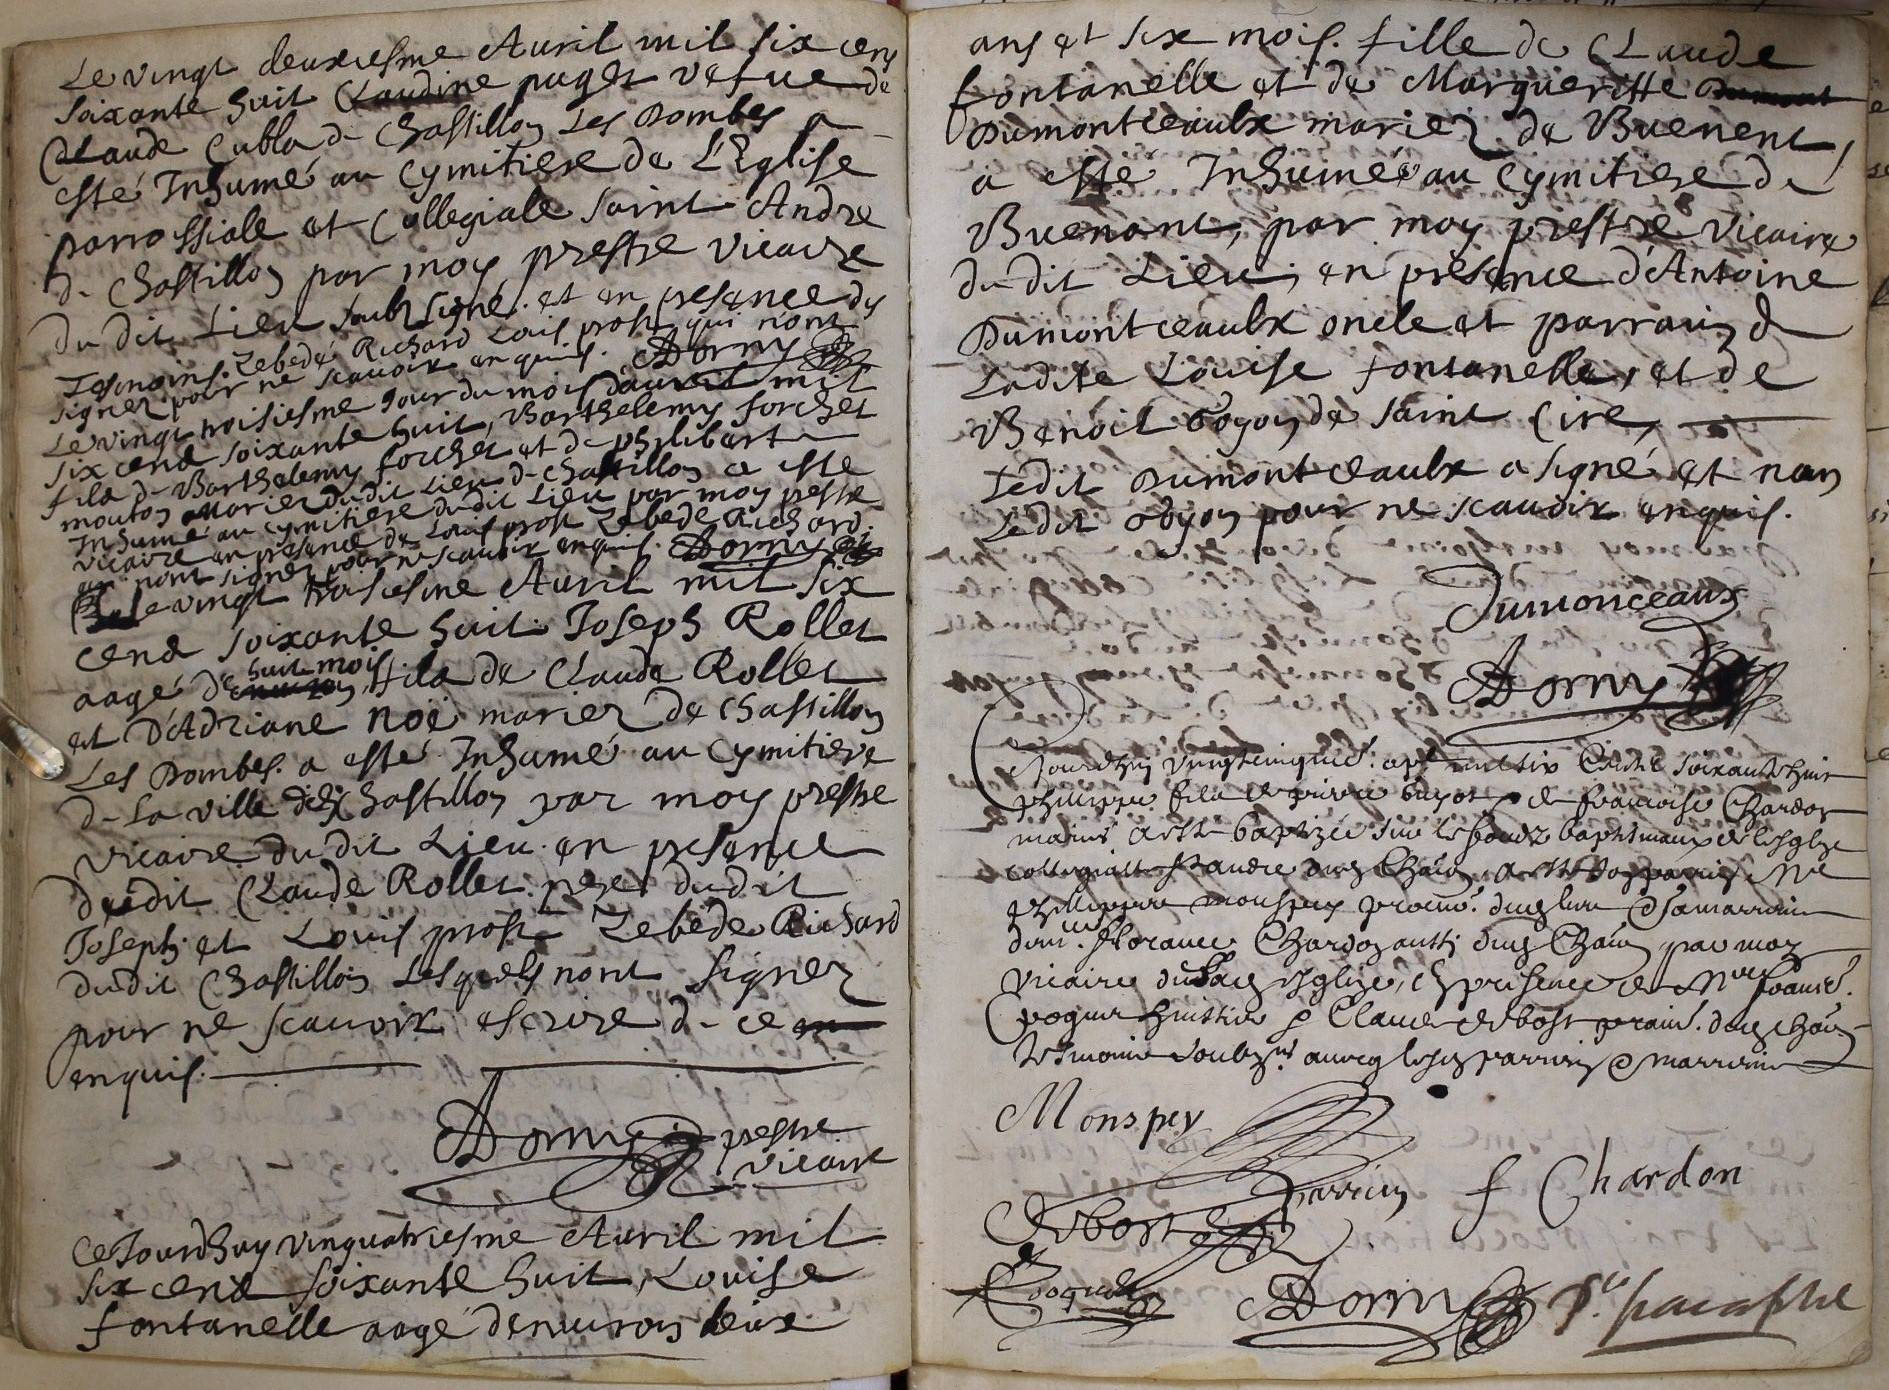 Le vingt deuxiesme Auril mil six cens
soixante huit Claudine puget vefue de
Claude Cubla de Chastillon Les Dombes a
esté Inhumé au Cymitiere de L'Eglise
parrossiale et Collegiale saint Andre
de Chastillon par moy prestre vicaire
du dit Lieu soubsigné et en presence des
Tesmoins Zebedé Richard Louis prost qui nont
signer pour ne scauoir enquis. Dorny
Le vingt troisiesme Jour du mois dauril mil
six cens soixante huit, Barthelemy forchet
fils de Barthelemy forchet et de philibarte
mouton Mariez du dit Lieu de Chastillon a esté
Inhumé au cymitiere du dit Lieu par moy prestre
vicaire en presence de Louis prost Zebede Richard
qui nont signer pour ne scauoir enquis. Dorny
Le vingt troisiesme Auril mil six
cens soixante huit Joseph Rollet
aagé de huit mois fils de Claude Rollet
et D'Adriane Noé mariez de Chastillon
Les Dombes a esté Inhumé au Cymitiere
de La ville de Chastillon par moy prestre
vicaire du dit Lieu en presence
dudit Claude Rollet pere dudit
Joseph et Louis prost Zebede Richard
dudit Chastillon Lesquels nont signer
pour ne scauoir escrire de ce
enquis.
Dorny prestre
vicaire
Ce Jourdhuy vinquatriesme Auril mil
six cens soixante huit, Louise
fontanelle aagé denuiron deux
ans et six mois. fille de Claude
fontanelle et de Margueritte
Dumontceaulx mariez de Buenent,
a esté Inhumée au Cymitiere de
Buenant, par moy prestre vicaire
du dit Lieu, en presence d'Antoine
Dumontceaulx oncle et parrain de
Ladite Louise fontanelle, et de
Benoit Goyon de saint Cire,
Ledit Dumontceaulx a signé et non
Ledit Goyon pour ne scauoir enquis.
Dumonceaux
Dorny
Jourdhuy vingtcinquie. apuril mil six Centz soixante huit
phillippe fils de pierre buyot et de francoise Chardon
mariés a esté baptizée sur les fondz baptismaux de lesglize
collegiatte St andre dud Chaon a esté son parrin Me
phillippe monspey dud lieu & sa marrine
florance Chardon aussi dud Chaon par moy
vicaire de lad esglize, en presence de
& Claude dud chaon
tesmoins soubznes auecq lesd parrin & marrine
Monspey
parrin f Chardon
Debost
Dorny